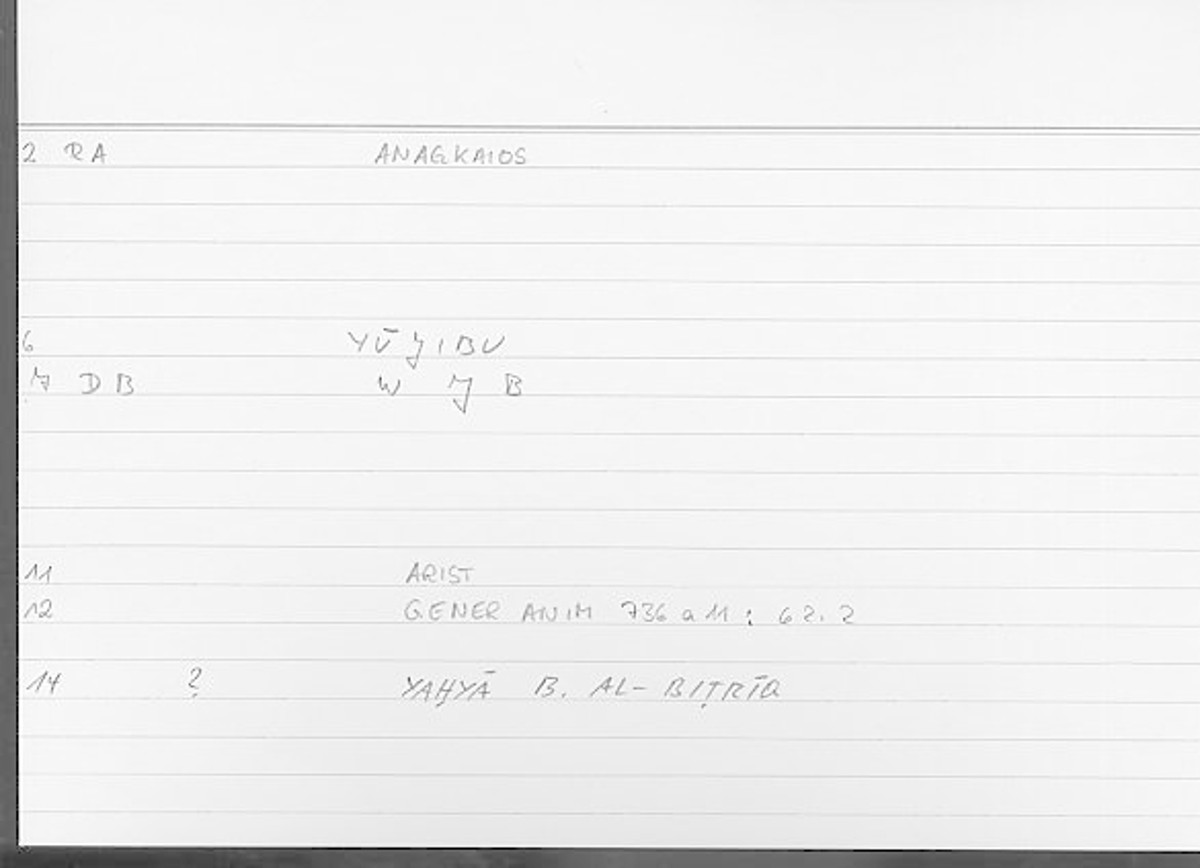 2 RA ANAGKAIOS
6 YŪǦIBU
7 DB W Ǧ B
11 ARIST
12 GENER ANIM 736 a 11 : 62.2
14 ? YAḤYĀ B. AL-BIṬRĪQ